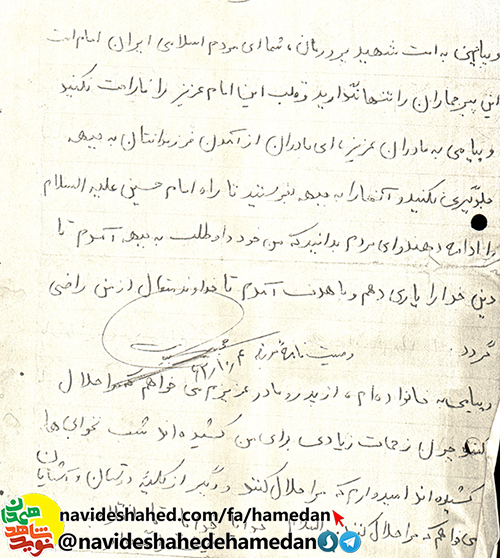 و پیامی به امت شهید پرورمان، شمای مردم اسلامی ایران امام امت
این پیر جماران را تنها نگذارید و قلب این امام عزیز را ناراحت نکنید
و پیامی به مادران عزیز، ای مادران از آمدن فرزندانتان به جبهه
جلوگیری نکنید و آنها را به جبهه بفرستید تا راه امام حسین علیه السلام
را ادامه دهند و ای مردم بدانید که من خود داوطلب به جبهه آمدم تا
دین خدا را یاری دهم و با هدف آمدم تا خداوند متعال از من راضی
گردد.
وصیت نامه مورخ ۶۲/۱۰/۴
و پیامی به خانواده‌ام، از پدر و مادر عزیزم می خواهم مرا حلال
کنند چون زحمات زیادی برای من کشیده اند شب نخوابی ها
کشیده اند امیدوارم که مرا حلال کنند و دیگر از کلیه دوستان و آشنایان
می خواهم که مرا حلال کنند والسلام خدایا خدایا
نوید شاهد همدان
navideshahed.com/fa/hamedan
@navideshahedehamedan